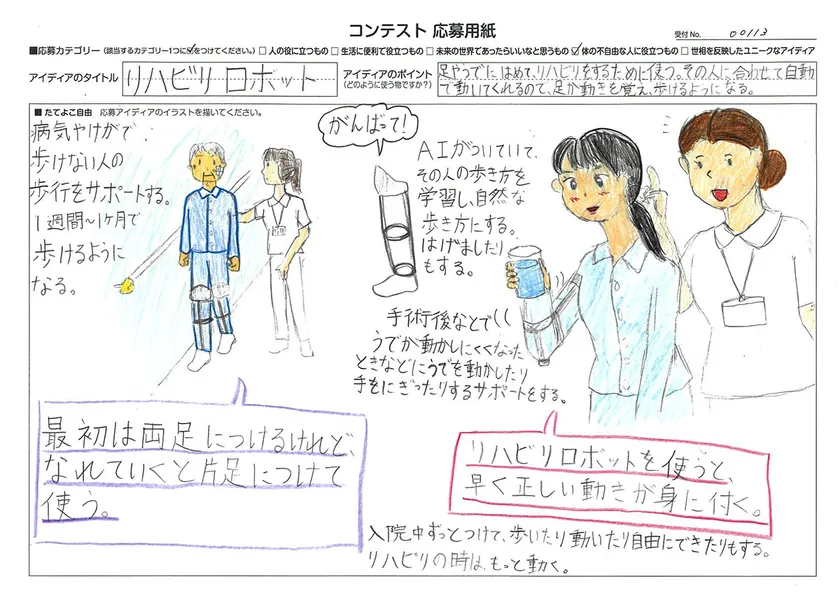 コンテスト 応募用紙
受付 No. 00113
■応募カテゴリー（該当するカテゴリー1つに✓をつけてください。）□ 人の役に立つもの □ 生活に便利で役立つもの □ 未来の世界であったらいいなと思うもの ☑ 体の不自由な人に役立つもの □ 世相を反映したユニークなアイディア
アイディアのタイトル
リハビリロボット
アイディアのポイント
（どのように使う物ですか？）
足やうでにはめて、リハビリをするために使う。その人に合わせて自動
で動いてくれるので、足が動きを覚え、歩けるようになる。
■ たてよこ自由 応募アイディアのイラストを描いてください。
病気やけがで、
歩けない人の
歩行をサポートする。
1週間〜1ヶ月で
歩けるように
なる。
がんばって！
AIがついていて、
その人の歩き方を
学習し、自然な
歩き方にする。
はげましたり
もする。
手術後などで
うでが動かしにくくなった
ときなどにうでを動かしたり
手をにぎったりするサポートをする。
最初は両足につけるけれど、
なれていくと片足につけて
使う。
リハビリロボットを使うと、
早く正しい動きが身に付く。
入院中ずっとつけて、歩いたり動いたり自由にできたりもする。
リハビリの時は、もっと動く。